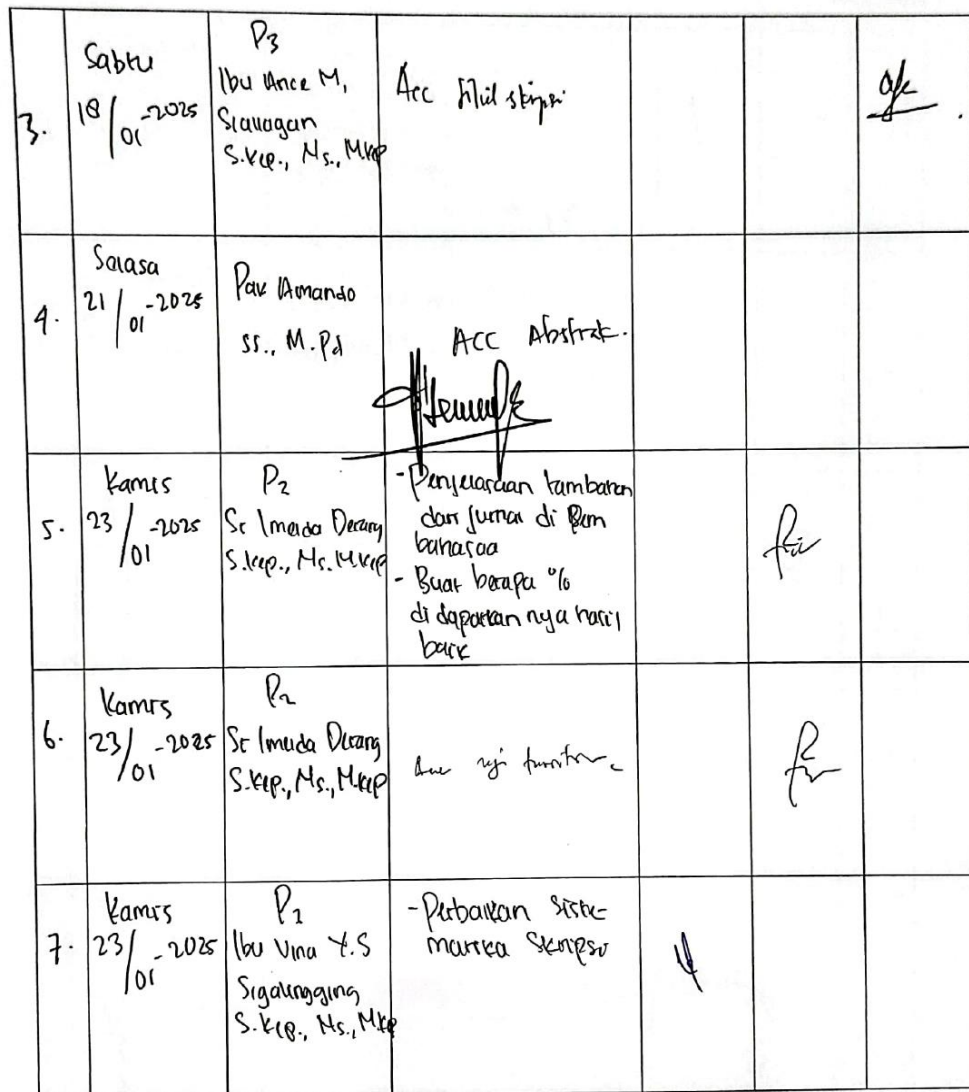 3.
Sabtu
18/01-2025
P3
Ibu Ance M,
Siallagan
S.Kep., Ns., M.Kep
Acc Jilid skripsi
4.
Selasa
21/01-2025
Pak Amando
SS., M.Pd
ACC Abstrak.
5.
Kamis
23/01-2025
P2
Sr Imelda Derang
S.Kep., Ns. M.Kep
- Penjelasan tambahan
dari jurnal di Pem
bahasaa
- Buat berapa %
di dapatkan nya hasil
baik
6.
Kamis
23/01-2025
P2
Sr Imelda Derang
S.Kep., Ns., M.Kep
Acc uji
7.
Kamis
23/01-2025
P1
Ibu Vina Y.S
Sigalingging
S.Kep., Ns., M.Kep
- Perbaikan siste-
matika Skripsi